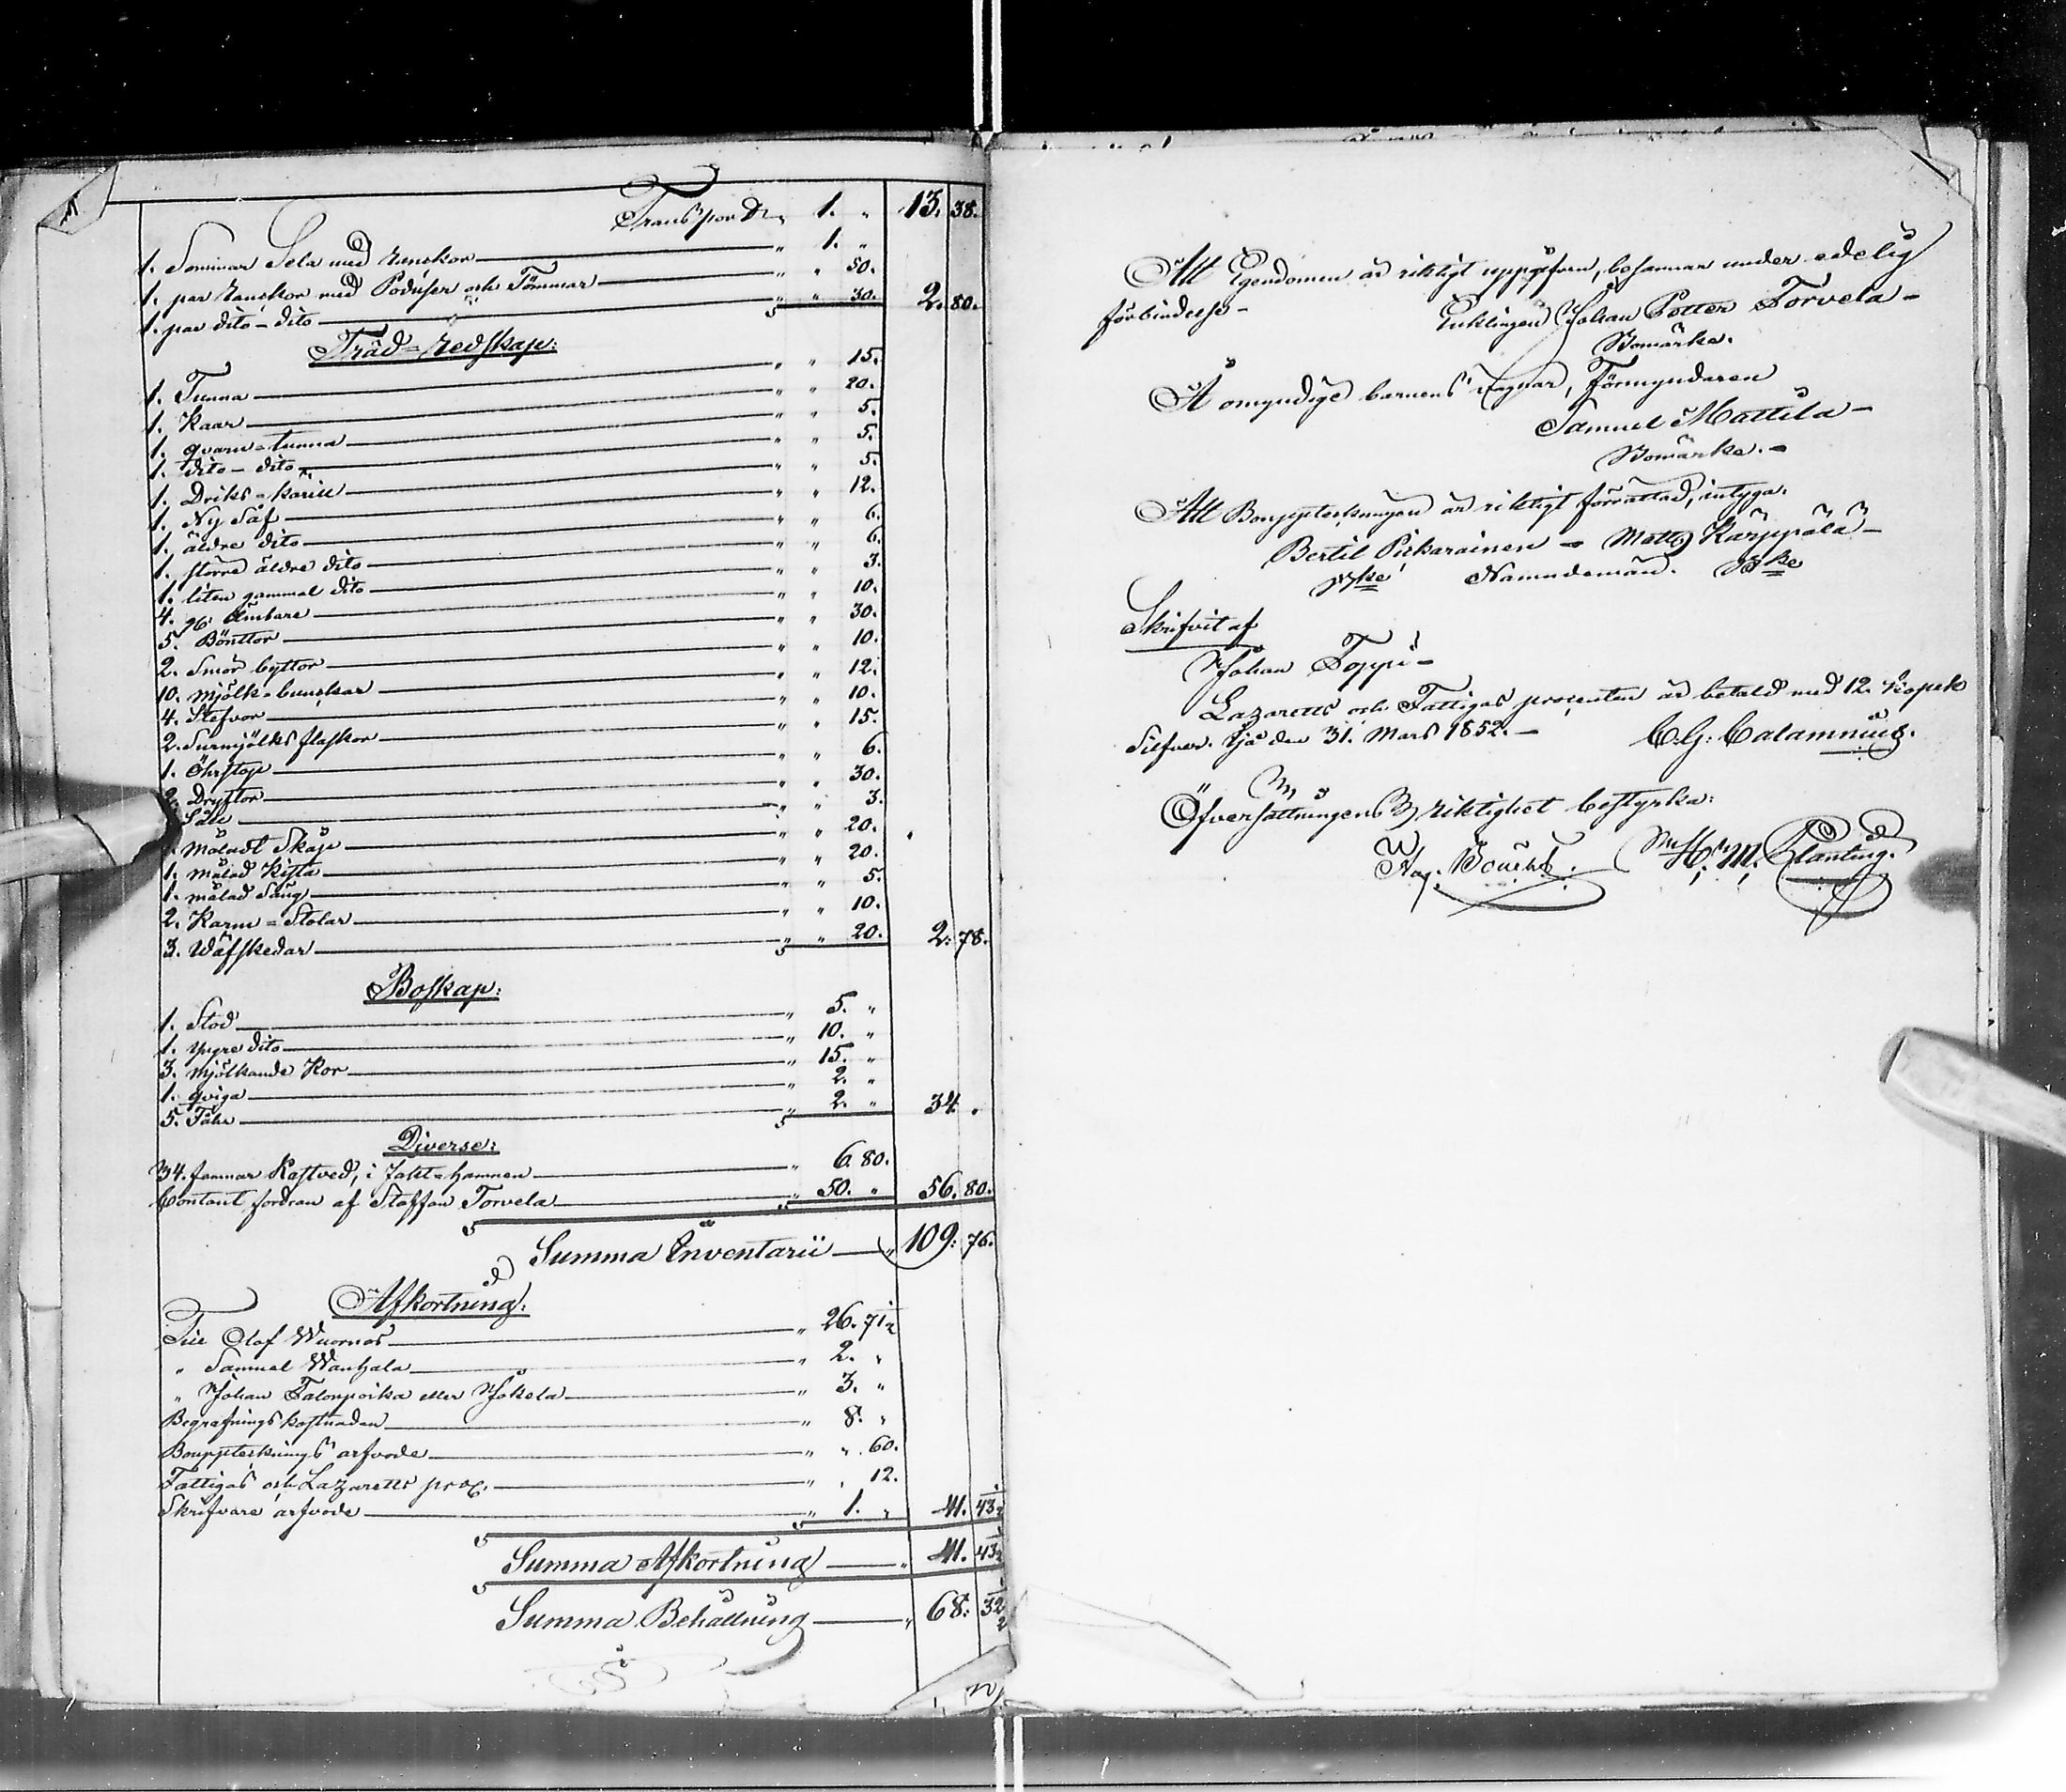 Transport „ 1. „ 13. 38.
1. Sommar Sela med Ranckor „ 1. „
1. par Ranckor med Poduser och Tömmar „ „ 50.
1. par dito - dito „ „ 30. 2. 80.
Träd-redskap:
1. Tunna „ „ 15.
1. Kaar „ „ 20.
1. qvarn-tunna „ „ 5.
1. dito - dito „ „ 5.
1. Driks-karill „ „ 5.
1. Ny Såf „ „ 12.
1. äldre dito „ „ 6.
1. större äldre dito „ „ 6.
1. liten gammal dito „ „ 3.
4. Ämbare „ „ 10.
5. Bönttor „ „ 30.
2. Smör byttor „ „ 10.
10. Mjölk-bunckar „ „ 12.
4. Stefvor „ „ 10.
2. Surmjölks flaskor „ „ 15.
1. Öhrstop „ „ 6.
2. Dryftor „ „ 30.
Såll „ „ 3.
Måladt Skåp „ „ 20.
1. målad Kista „ „ 20.
1. målad Säng „ „ 5.
2. Karm-Stolar „ „ 10.
3. Wäfskedar „ „ 20. 2. 78.
Boskap:
1. Stod „ 5. „
1. yngre dito „ 10. „
3. mjölkande Kor „ 15. „
1. qviga „ 2. „
5. Fåhr „ 2. „ 34. „
Diverse:
34. famnar Kastved, i Jakt-hamnen „ 6. 80.
Contant fordran af Staffan Torvela „ 50. „ 56. 80.
Summa Inventarii „ 109: 76.
Afkortning:
Till Olof Wuornos „ 26. 71 1/2
„ Samuel Wanhala „ 2. „
„ Johan Talonpoika eller Jokela „ 3. „
Begrafningskostnaden „ 8. „
Bouppteckningsarfvode „ „ 60.
Fattigas och Lazaretts proc. „ „ 12.
Skrifvare arfvode „ 1. „ 41. 43 1/2
Summa Afkortning „ 41. 43 1/2
Summa Behållning „ 68: 32 1/2
Att Egendomen är riktigt uppgifven, besannar under edelig
förbindelse - Enklingen Johan Petter Torvela -
Bomärke.
Å omyndige barnens vagnar, Förmyndaren
Samuel Mattila -
Bomärke. -
Att Bouppteckningen är riktigt förrättad, intyga.
Bertil Pirkarainen - Matts Kärppälä -
Bke Nämndemän. Bke
Skrifvit af
Johan Toppi -
Lazaretts och Fattigas procenten är betald med 12. Kopek
Silfver. Ijå den 31. Mars 1852. - C. G. Calamnius.
Öfversättningens riktighet bestyrka:
H. M. Planting.